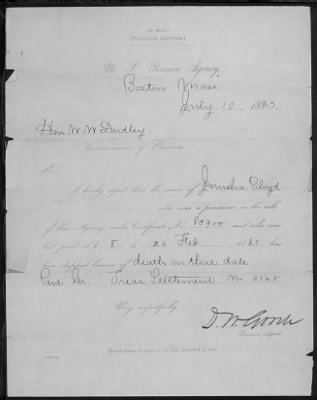 (3—404.)
[PENSIONER DROPPED.]
U. S. Pension Agency,
Boston Mass
July 10, 1883.
Hon W W Dudley
Commissioner of Pensions
Sir:
I hereby report that the name of Jerusha Cloyd
who was a pensioner on the rolls
of this Agency under Certificate No. 83900 and who was
last paid at $ 8 to 20 Feb 1883, has
been dropped because of death on that date
Paid per Treas Settlement No 2160
Very respectfully,
D. W. Gooch
Pension Agent.